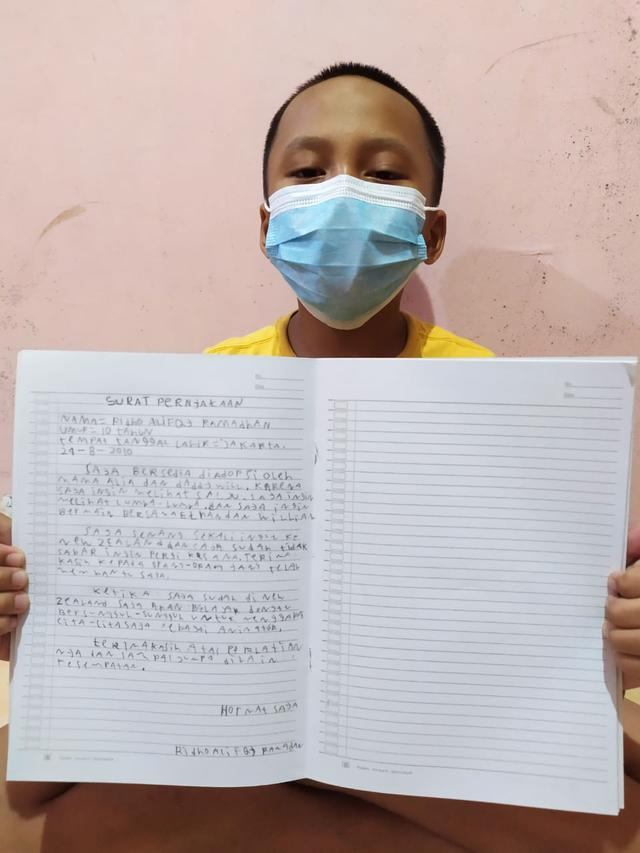 No:
Date:
No:
Date:
SURAT PERNJAKAAN
NAMA= RIDHO ALIFQJ RAMADHAN
UMUR= 10 TAHUN
TEMPAT TANGGAL LAHIR = JAKARTA.
24-8-2010
SAJA BERSEDIA DIADOPSI OLEH
MAMA ALIA DAN DADDY WILL. KARENA
SAJA INGIN MELIHAT SALJU. SAJA INGIN
MELIHAT LUMBA-LUMBA. DAN SAJA INGIN
BERMAIN BERSAMA ETHAN DAN WILLIAM
SAJA SENANG SEKALI INGIN KE
NEW ZEALAND DAN SAJA SUDAH TIDAK
SABAR INGIN PERGI KESANA. TERIMA
KASIH KEPADA ORANG-ORANG JANG TELAH
MEMBANTU SAJA.
KETIKA SAJA SUDAH DI NEW
ZEALAND SAJA AKAN BELAJAR DENGAN
BERSUNGUH-SUNGUH UNTUK MENGGAPAI
CITA-CITA SAJA SEBAGAI ANIMATOR.
TERIMAKASIH ATAS PERHATIAN
NJA DAN SAMPAI JUMPA DILAIN
KESEMPATAN.
HORMAT SAJA
RIDHO ALIFQJ RAMADHAN